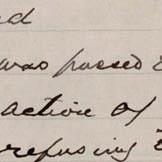 d
was passed
action of
refusing